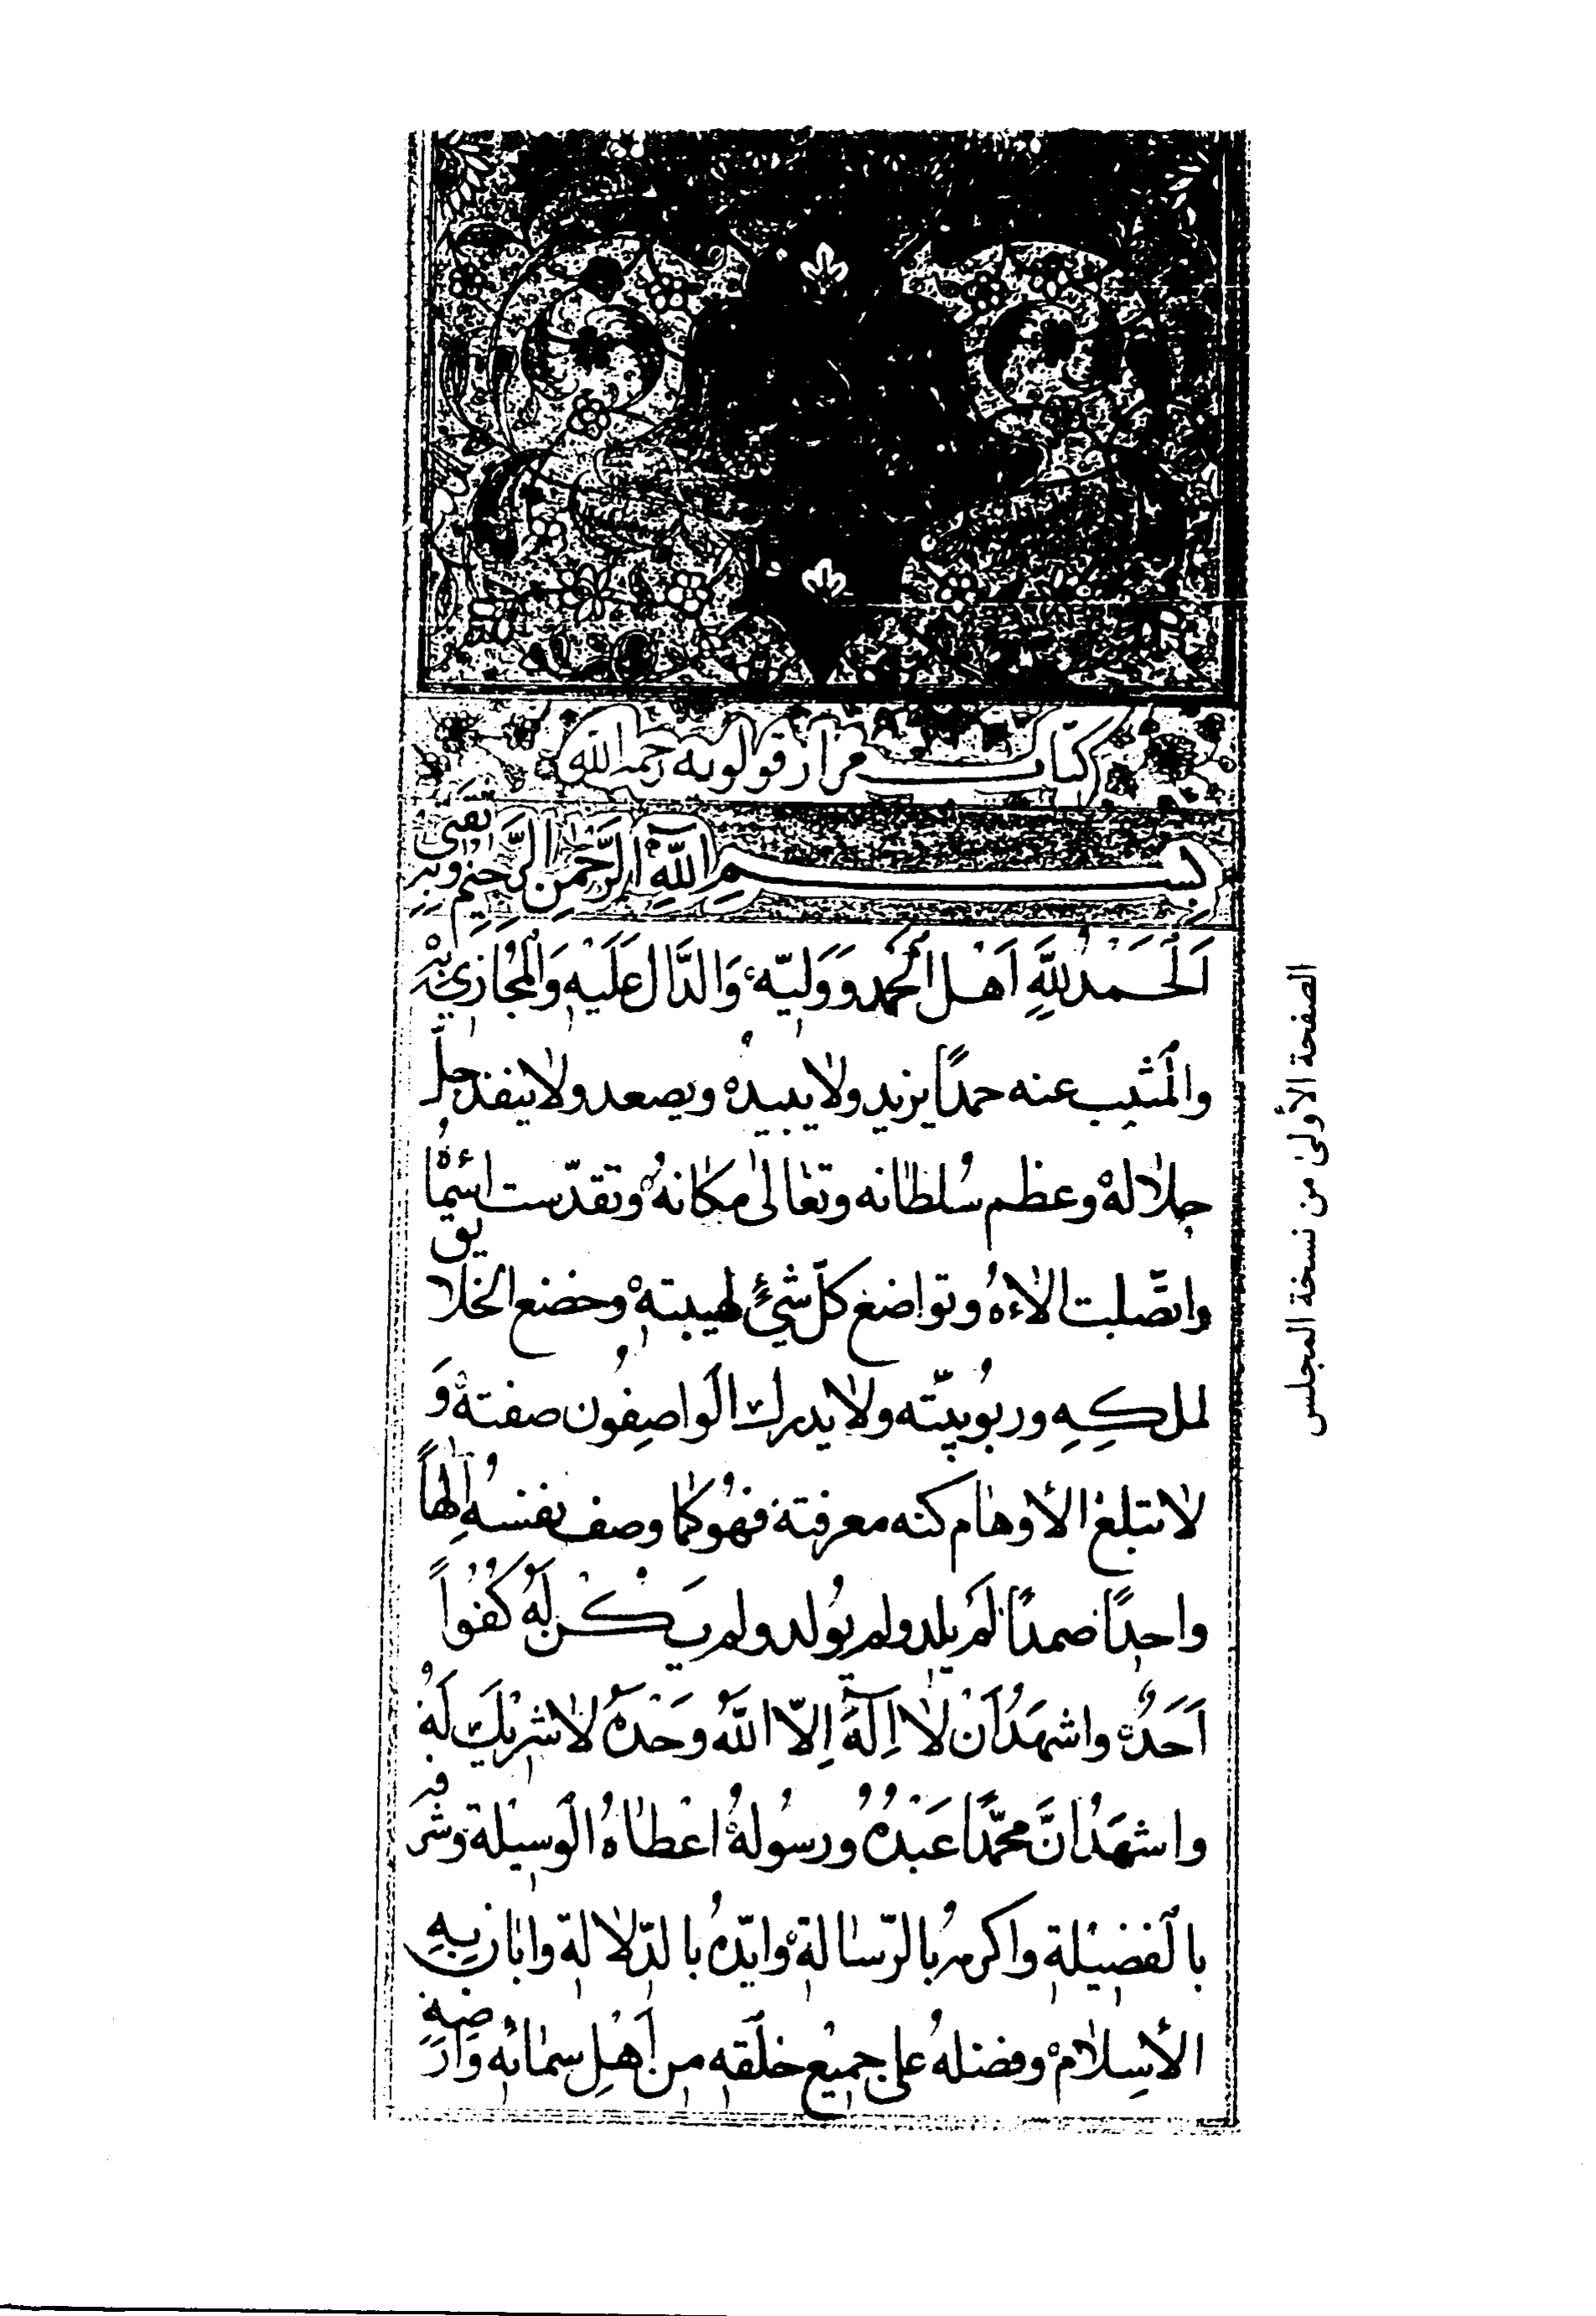 كتاب مزار قولويه رحمه الله
بِسْمِ اللهِ الرَّحْمٰنِ الرَّحيْمِ وبه ثقتي
اَلْحَمْدُ لِلّٰهِ اَهْلِ الْحَمْدِ وَوَلِيّهِ وَالدَّالِ عَلَيْهِ وَالْمُجٰازي بِهْ
والْمثيب عنه حمدًا يزيد ولٰا يبيدُ ويصعد ولٰا ينفذ جلّ
جلٰالهُ وعظم سُلطٰانه وتعٰالىٰ مكٰانهُ وتقدّست اسْمٰائهُ
واتّصلت الٰاءهُ وتواضع كلّ شيْءٍ لهيبتهْ وخضع الخلايق
لملكِهِ وربُوبيّته ولٰا يدرك الْواصِفُون صفتهْ وَ
لٰا تبلغ الأوهٰام كنه معرفته فهُو كمٰا وصف نفسهُ اِلٰهاً
واحِدًا صمدًا لَمْ يلد ولم يُولد ولم يَكُنْ لَهُ كُفُواً
اَحَدٌ واشهَدُ اَنْ لٰا اِلٰهَ اِلّا اللهُ وحْدهُ لٰا شريْكَ لَهُ
واشهَدُ انَّ محمّدًا عَبْدُهُ ورسُولهُ اعْطٰاهُ الْوسيْلة وشرفه
بالْفضيْلة واكرمهُ بالرّسٰالة وايّدهُ بالدّلٰالة وابٰان بِهِ
الأسِلٰام وفضلهُ على جميْع خلْقه من اَهْلِ سمٰائه وَارَضِهِ
الصفحة الأولىٰ من نسخة المجلس